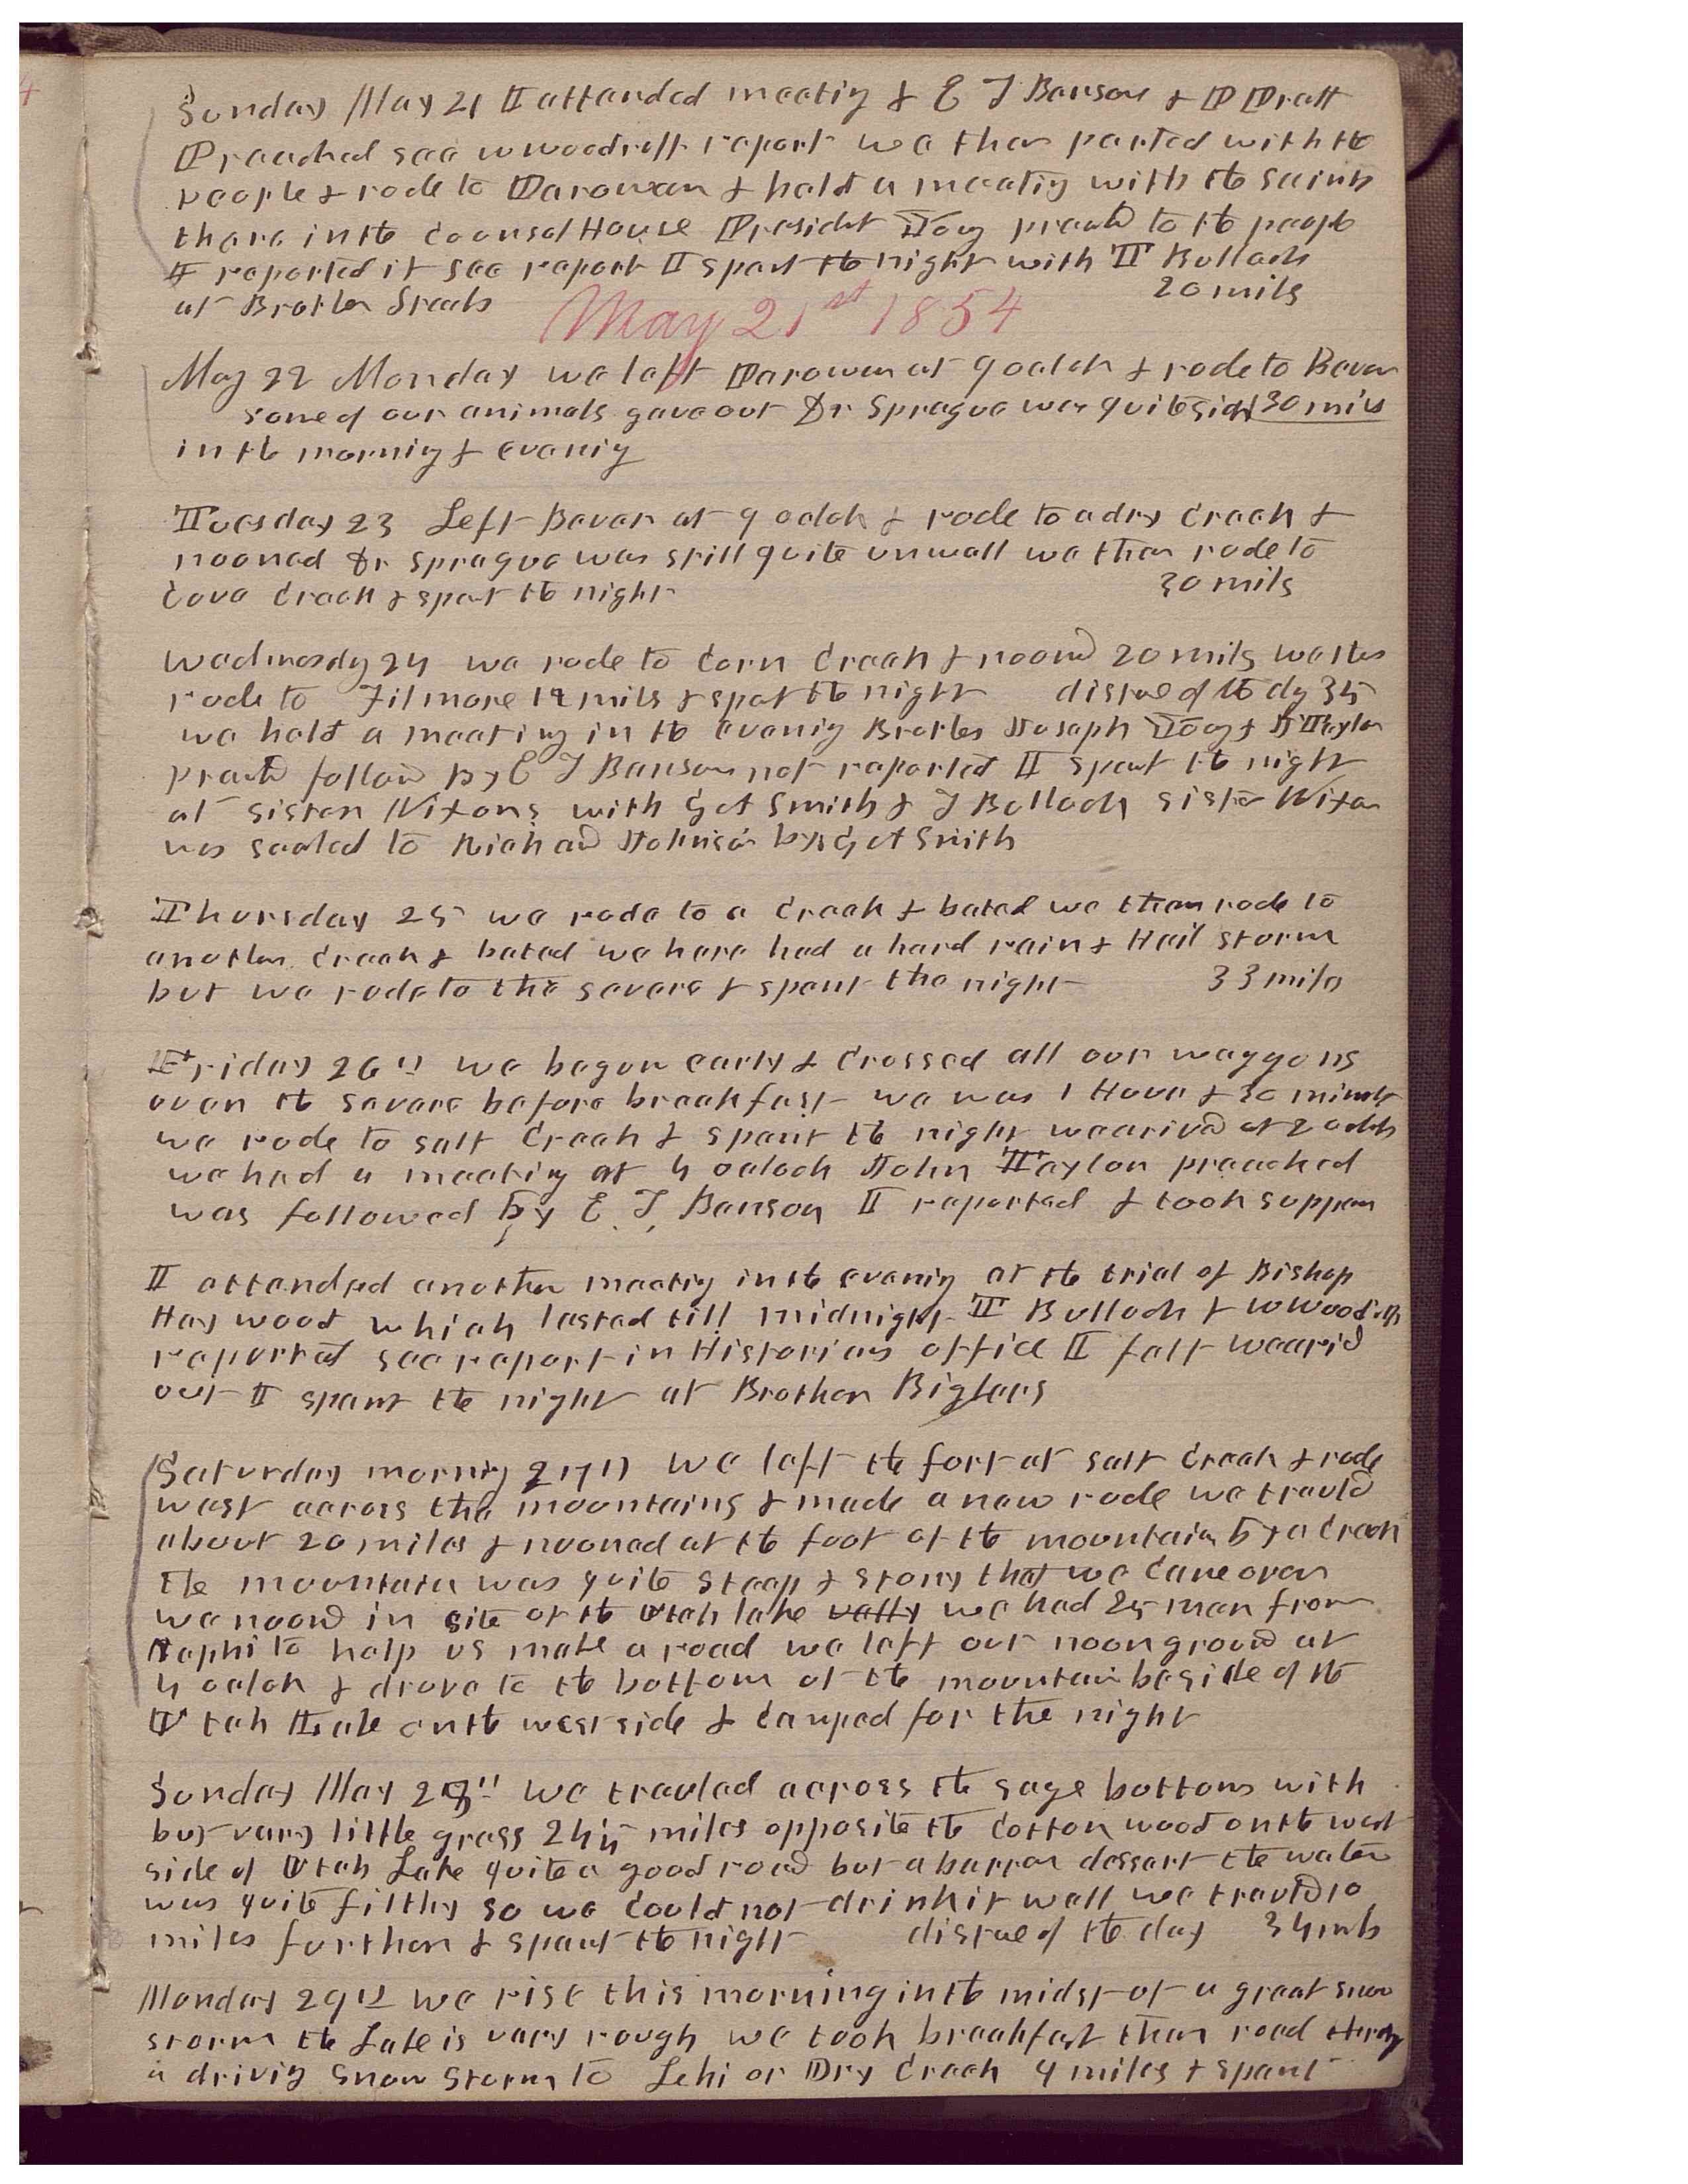 Sunday May 21 I attended meetig & E T Benson & P P Pratt
Preached see W Woodruff report we then parted with the
people & rode to Parowan & held a meetig with the saints
there in the Counsel House Presidet Young preachd to the people
I reported it see report I spent the night with T Bulloch
20 mils
at Brother Steels
May 21st 1854
May 22 Monday we left Parowan at 9 oclok & rode to Bever
some of our animals gave out Dr Sprague was quite sick 30 mils
in the mornig & evenig
Tuesday 23 Left Bever at 9 oclok & rode to a dry Creek &
nooned Dr Sprague was still quite unwell we then rode to
Cove Creek & spent the night 30 mils
Wednesdy 24 we rode to Corn Creek & noond 20 mils we then
rode to Filmore 12 mils & spet the night distae of the dy 35
we held a meeting in the evenig Brothes Joseph Young & J Taylor
preachd followd by E T Benson not reported I spent the night
at Sister Nixons with G A Smith & T Bulloch Sister Nixon
was sealed to Richad Johnson by G A Smith
Thursday 25 we rode to a Creek & bated we then rode to
another Creek & bated we here had a hard rain & Hail storm
but we rode to the severe & spent the night 33 mils
Friday 26th we begun early & Crossed all our waggons
over the severe before breakfast we was 1 Hour & 30 minuts
we rode to salt Creek & spent the night we arived at 2 oclok
we had a meetig at 4 oclock John Taylor preached
was followed by E. T. Benson I reported & took supper
I attended another meetig in the evenig at the trial of Bishop
Haywood which lasted till midnight T Bulloch & W Woodruff
reported see report in Historians office I felt weerid
out I spent the night at Brother Biglers
Saturday mornig 27th we left the fort at salt Creek & rode
west across the mountains & made a new rode we travld
about 20 miles & nooned at the foot of the mountain by a Creek
The mountain was quite steep & stony that we Came over
we noond in site of the Utah lake vally we had 25 men from
Nephi to help us make a road we left our noon ground at
4 oclok & drove to the bottom of the mountain beside of the
Utah Lake on the west side & Camped for the night
Sunday May 28th we traveled across the sage bottoms with
but very little grass 24 miles opposite the Cotton wood on the west
side of Utah Lake quite a good road but a barren dessert the water
was quite filthy so we Could not drink it well we travld 10
miles further & spent the night distae of the day 34 mls
Monday 29th we rise this morning in the midst of a great snow
storm the Lake is very rough we took breakfast then road through
a drivig snow storm to Lehi or Dry Creek 4 miles & spent